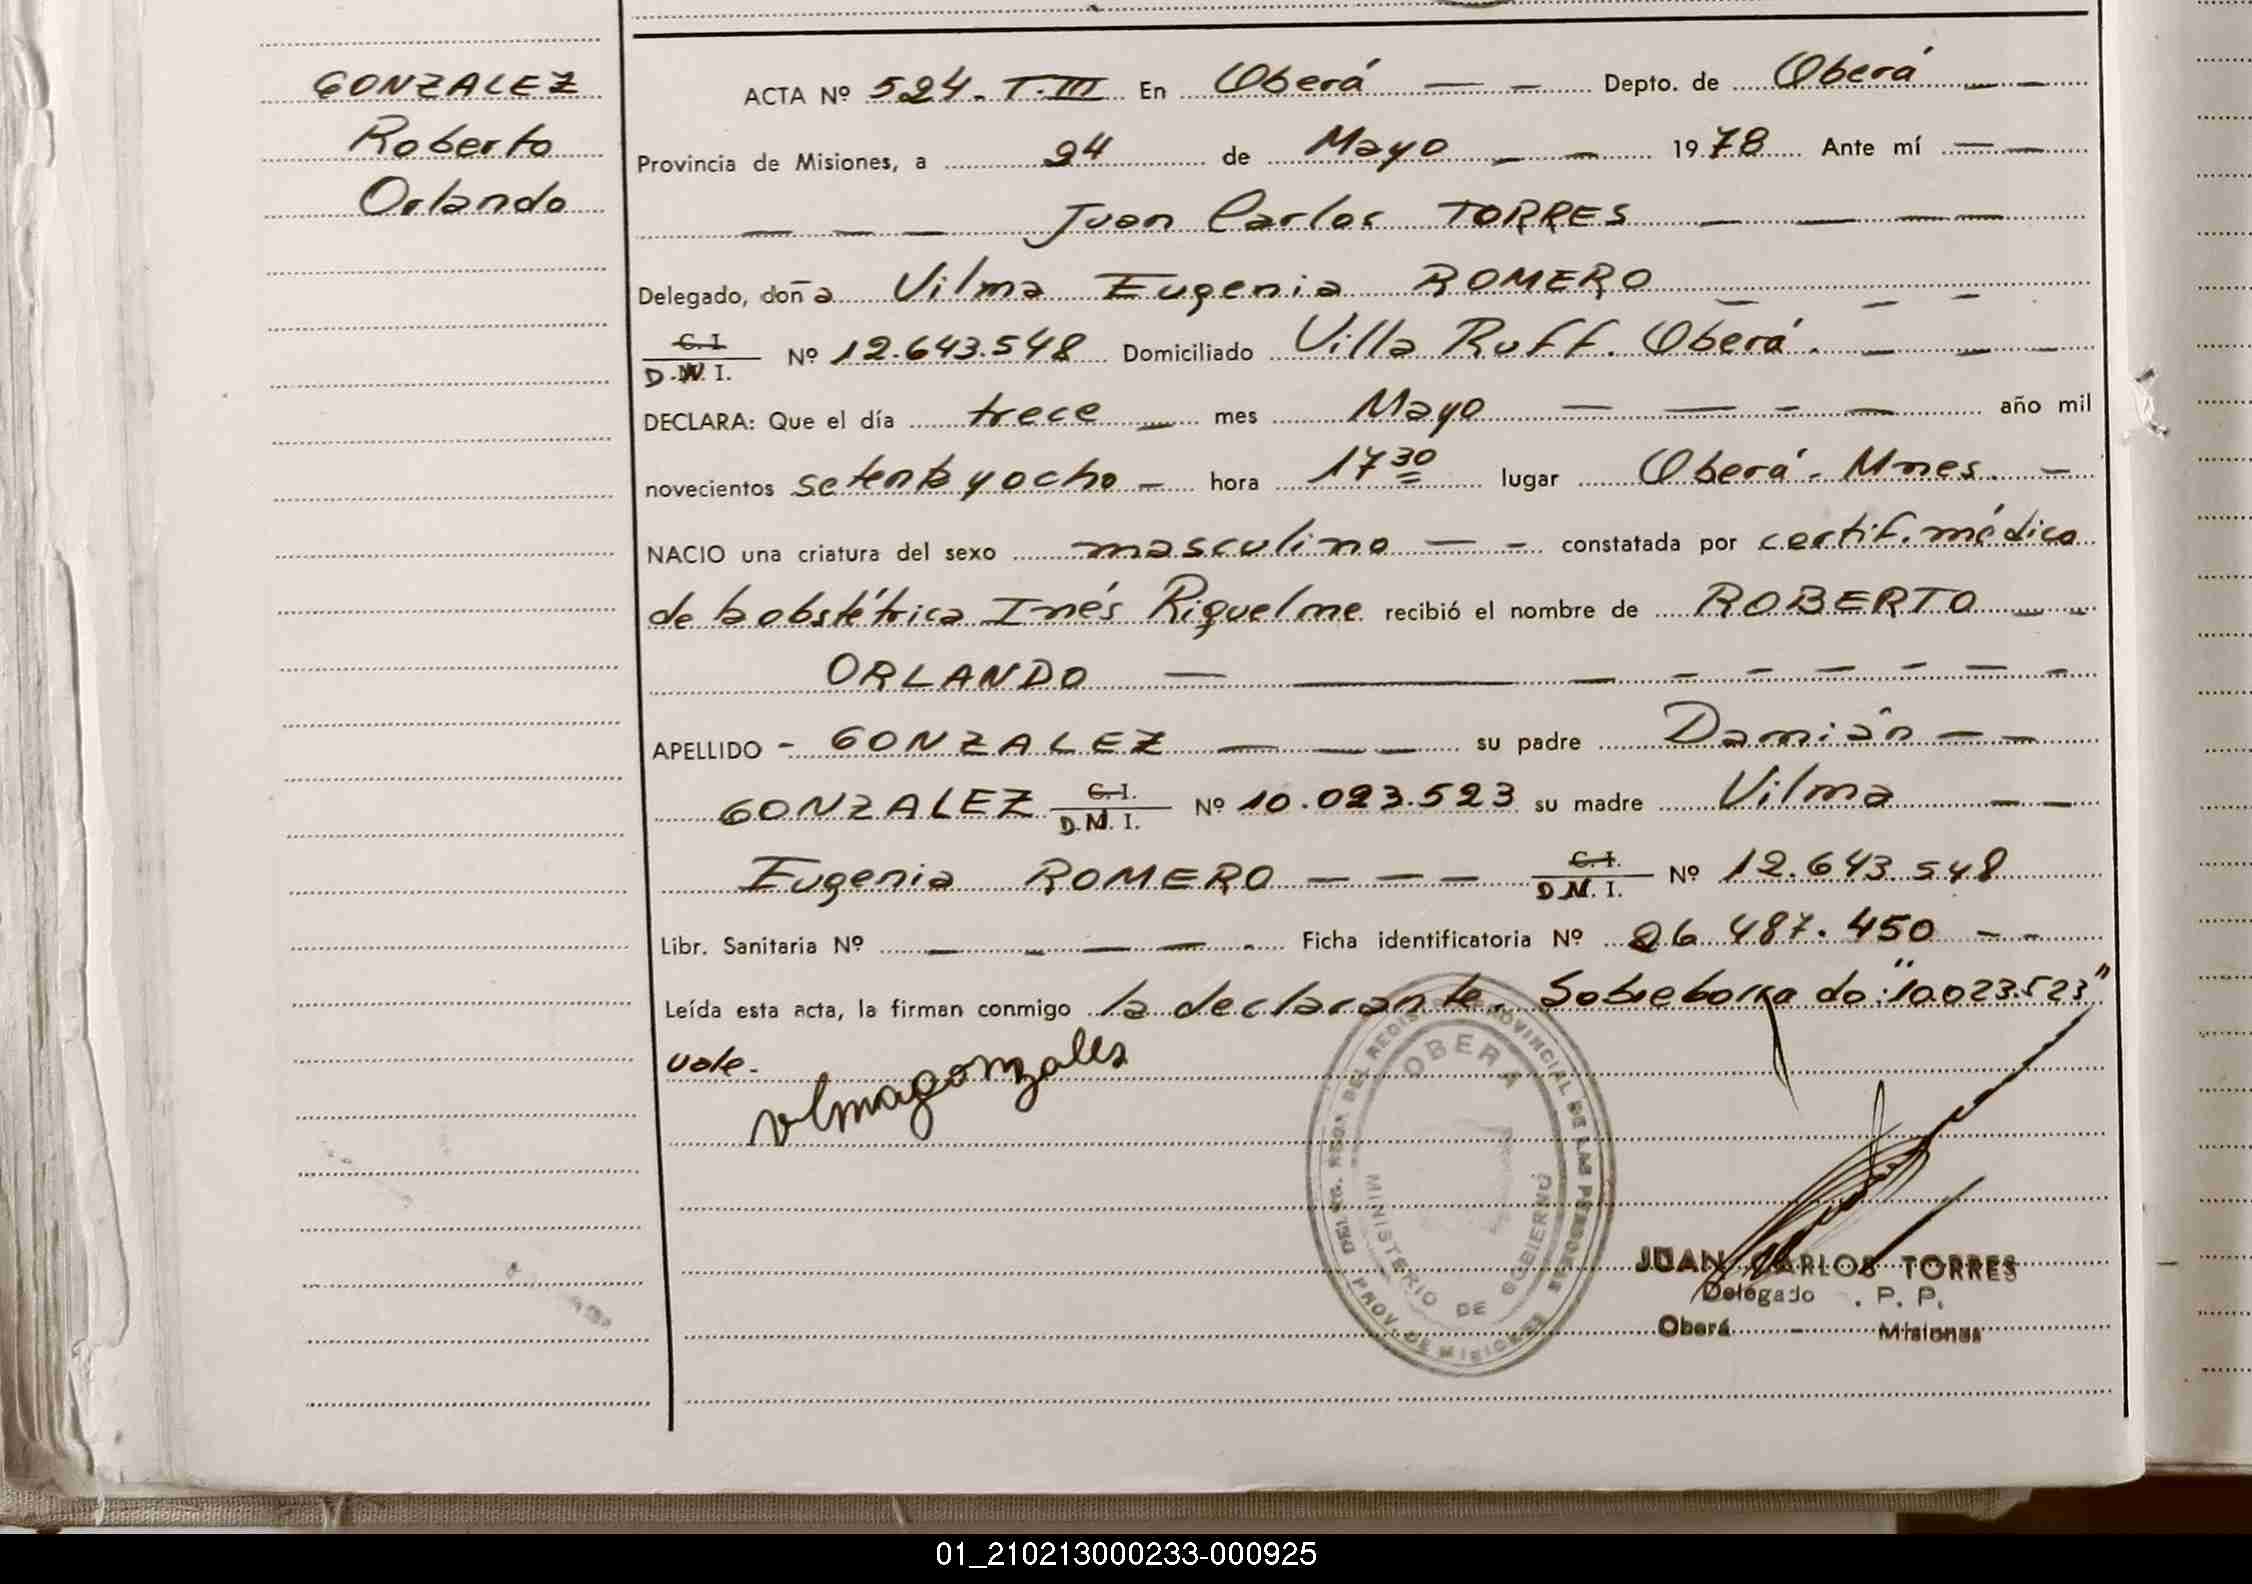 GONZALEZ
Roberto
Orlando
ACTA Nº 524. T. III En Oberá Depto. de Oberá
Provincia de Misiones, a 24 de Mayo 1978 Ante mí
Juan Carlos TORRES
Delegado, doña Vilma Eugenia ROMERO
C. I.
D.N.I. Nº 12.643.548 Domiciliado Villa Ruff. Oberá.
DECLARA: Que el día trece mes Mayo año mil
novecientos setenta y ocho hora 17 30 lugar Oberá. Mnes.
NACIO una criatura del sexo masculino constatada por certif. médico
de la obstétrica Inés Riquelme recibió el nombre de ROBERTO
ORLANDO
APELLIDO - GONZALEZ su padre Damián
GONZALEZ C. I. D.N.I. Nº 10.023.523 su madre Vilma
Eugenia ROMERO C. I. D.N.I. Nº 12.643.548
Libr. Sanitaria Nº Ficha identificatoria Nº 26 487.450
Leída esta acta, la firman conmigo la declarante. Sobreborrado: "10.023.523"
vale.
vilmagonzales
DELEG. REGA. DEL REGISTRO PROVINCIAL DE LAS PERSONAS
OBERA
MINISTERIO DE GOBIERNO
PROV. DE MISIONES
JUAN CARLOS TORRES
Delegado . P. P.
Oberá - Misiones
01_210213000233-000925